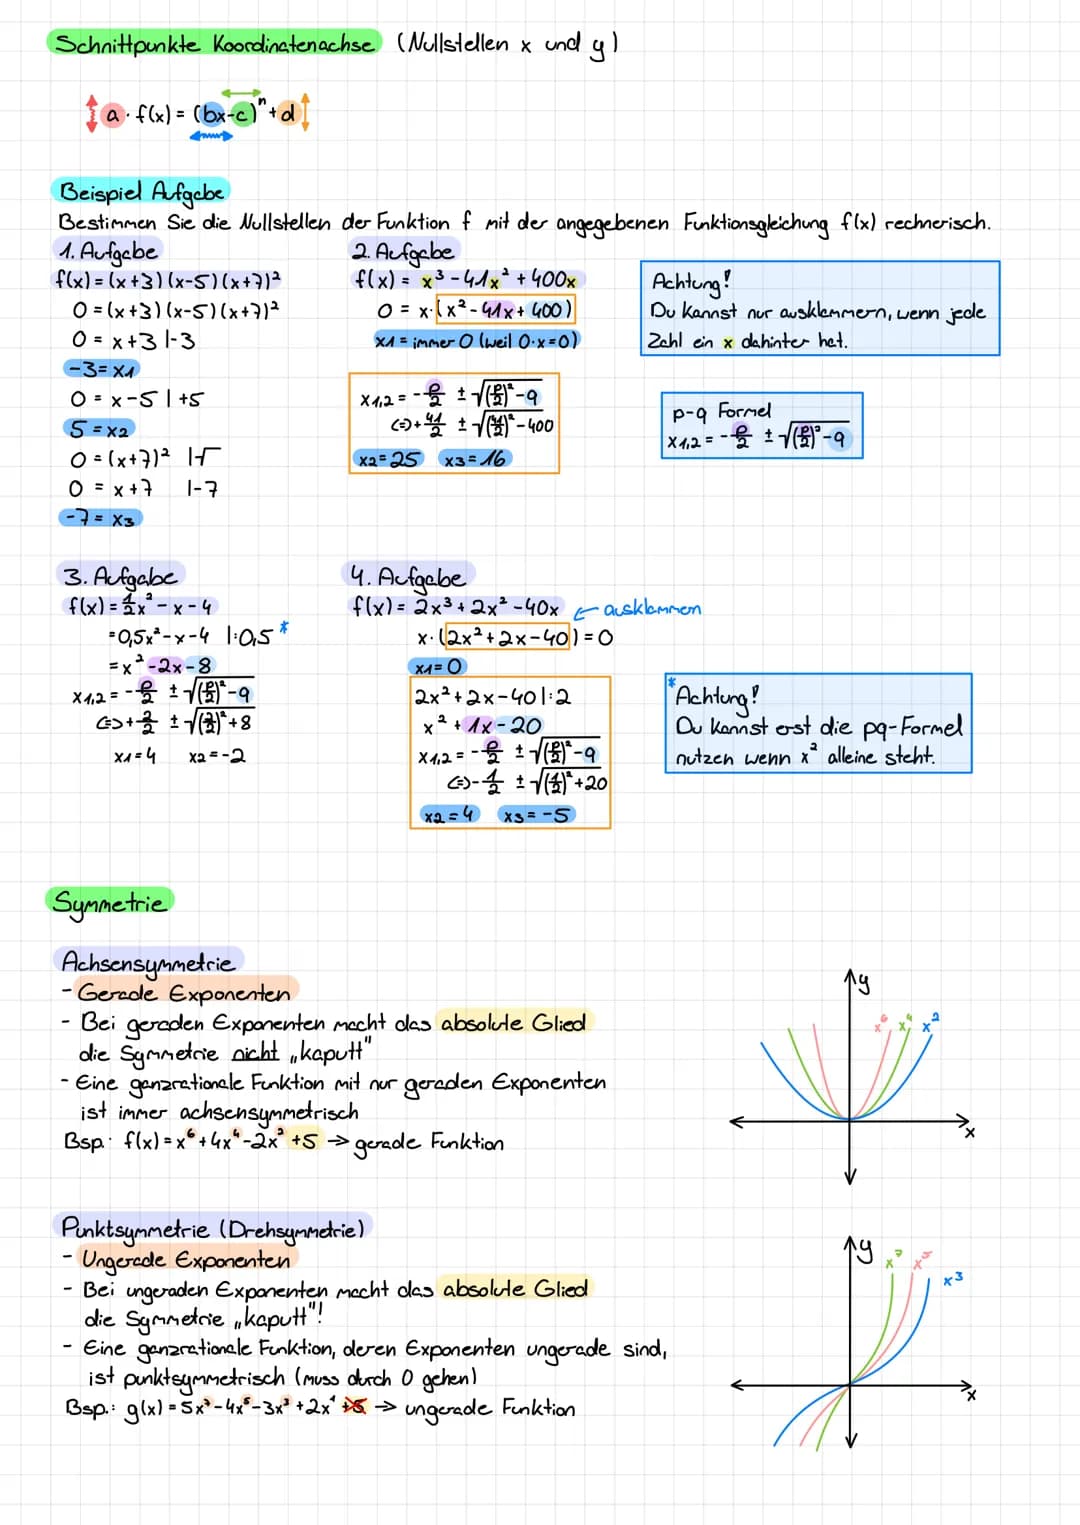 Schnittpunkte Koordinatenachse (Nullstellen x und y)
a · f(x) = (bx-c)ⁿ + d
Beispiel Aufgabe
Bestimmen Sie die Nullstellen der Funktion f mit der angegebenen Funktionsgleichung f(x) rechnerisch.
1. Aufgabe
f(x) = (x+3)(x-5)(x+7)²
0 = (x+3)(x-5)(x+7)²
0 = x+3 |-3
-3 = x1
0 = x-5 | +5
5 = x2
0 = (x+7)² |√
0 = x+7 |-7
-7 = x3
2. Aufgabe
f(x) = x³ - 41x² + 400x
0 = x·(x² - 41x + 400)
x1 = immer 0 (weil 0·x=0)
x1,2 = -p/2 ± √(p/2)²-q
<=> + 41/2 ± √(41/2)²-400
x2 = 25 x3 = 16
Achtung!
Du kannst nur ausklammern, wenn jede
Zahl ein x dahinter hat.
p-q Formel
x1,2 = -p/2 ± √(p/2)²-q
3. Aufgabe
f(x) = 1/2x² - x - 4
= 0,5x² - x - 4 |:0,5 *
= x² - 2x - 8
x1,2 = -p/2 ± √(p/2)²-q
<=> + 2/2 ± √(2/2)²+8
x1 = 4 x2 = -2
4. Aufgabe
f(x) = 2x³ + 2x² - 40x ← ausklammern
x·(2x² + 2x - 40) = 0
x1 = 0
2x² + 2x - 40 |:2
x² + 1x - 20
x1,2 = -p/2 ± √(p/2)²-q
<=> - 1/2 ± √(1/2)²+20
x2 = 4 x3 = -5
* Achtung!
Du kannst erst die pq-Formel
nutzen wenn x² alleine steht.
Symmetrie
Achsensymmetrie
- Gerade Exponenten
- Bei geraden Exponenten macht das absolute Glied
die Symmetrie nicht „kaputt"
- Eine ganzrationale Funktion mit nur geraden Exponenten
ist immer achsensymmetrisch
Bsp.: f(x) = x⁶ + 4x⁴ - 2x² + 5 → gerade Funktion
y
x⁶ x⁴ x²
x
Punktsymmetrie (Drehsymmetrie)
- Ungerade Exponenten
- Bei ungeraden Exponenten macht das absolute Glied
die Symmetrie „kaputt"!
- Eine ganzrationale Funktion, deren Exponenten ungerade sind,
ist punktsymmetrisch (muss durch 0 gehen)
Bsp.: g(x) = 5x⁷ - 4x⁵ - 3x³ + 2x¹ +5 → ungerade Funktion
y
x⁷ x⁵ x³
x